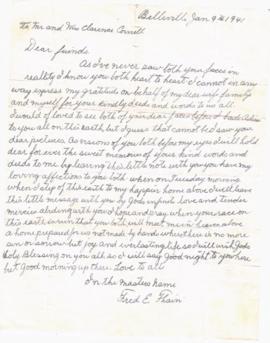 Belleville Jan 9th 1941
to Mr and Mrs Clarence Connell
Dear friends
As I've never saw both your faces on
reality I know you both heart to heart I cannot in any
way express my gratitude on behalf of my dear wife family
and myself for your kindly deeds and words to us all
I would of loved to see both of your dear faces before I
to you all on this earth but I guess that cannot be I saw your
dear pictures. As visions of you both before my eyes I will hold
dear forever the sweet measures of your kind words and
deeds to me by leaving this letter note with you you have my
loving affections to you both when on Tuesday morning
when I slip off this earth to my dayspring home above I will leave
this little message with you by Gods infinite love and tender
mercies abiding with you I hope and pray when your race on
this earth is run that you both will meet me in heaven above
a home prepared for us not made by hands where there is no more
sin or sorrow but joy and everlasting life so I will wish Gods
Holy Blessing on you all so I will say Good night to you here
but Good morning up there. Love to all
In the Masters name
Fred E.